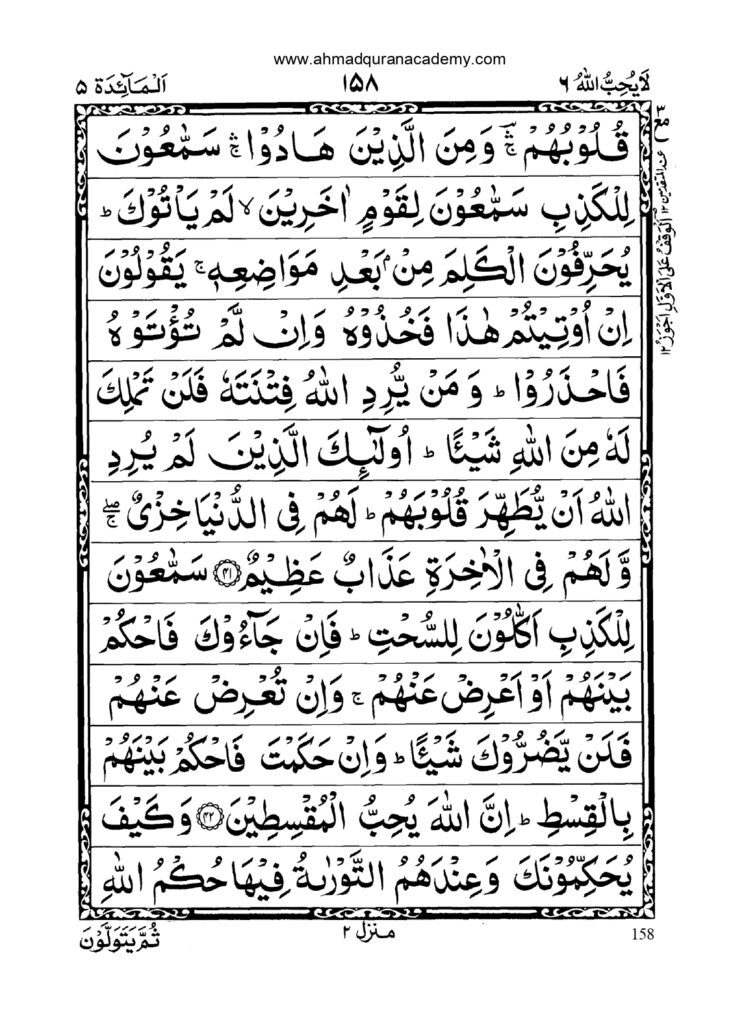 www.ahmadquranacademy.com
لَا يُحِبُّ اللّٰهُ ٦
١٥٨
اَلْمَآئِدَة ٥
قُلُوْبُهُمْ ۛۚ وَمِنَ الَّذِيْنَ هَادُوْا ۛۚ سَمّٰعُوْنَ
لِلْكَذِبِ سَمّٰعُوْنَ لِقَوْمٍ اٰخَرِيْنَ ۙ لَمْ يَاْتُوْكَ ؕ
يُحَرِّفُوْنَ الْكَلِمَ مِنْۢ بَعْدِ مَوَاضِعِهٖ ۚ يَقُوْلُوْنَ
اِنْ اُوْتِيْتُمْ هٰذَا فَخُذُوْهُ وَاِنْ لَّمْ تُؤْتَوْهُ
فَاحْذَرُوْا ؕ وَمَنْ يُّرِدِ اللّٰهُ فِتْنَتَهٗ فَلَنْ تَمْلِكَ
لَهٗ مِنَ اللّٰهِ شَيْـًٔا ؕ اُولٰٓئِكَ الَّذِيْنَ لَمْ يُرِدِ
اللّٰهُ اَنْ يُّطَهِّرَ قُلُوْبَهُمْ ؕ لَهُمْ فِى الدُّنْيَا خِزْىٌ ۖۚ
وَّلَهُمْ فِى الْاٰخِرَةِ عَذَابٌ عَظِيْمٌ ﴿٤١﴾ سَمّٰعُوْنَ
لِلْكَذِبِ اَكّٰلُوْنَ لِلسُّحْتِ ؕ فَاِنْ جَآءُوْكَ فَاحْكُمْ
بَيْنَهُمْ اَوْ اَعْرِضْ عَنْهُمْ ۚ وَاِنْ تُعْرِضْ عَنْهُمْ
فَلَنْ يَّضُرُّوْكَ شَيْـًٔا ؕ وَاِنْ حَكَمْتَ فَاحْكُمْ بَيْنَهُمْ
بِالْقِسْطِ ؕ اِنَّ اللّٰهَ يُحِبُّ الْمُقْسِطِيْنَ ﴿٤٢﴾ وَكَيْفَ
يُحَكِّمُوْنَكَ وَعِنْدَهُمُ التَّوْرٰىةُ فِيْهَا حُكْمُ اللّٰهِ
مع ٣
عند المتقدمين ١٢
اَلْوَقْفُ عَلَى الْاَوَّلِ اَجْوَزُ ١٢
158
منزل ٢
ثُمَّ يَتَوَلَّوْنَ